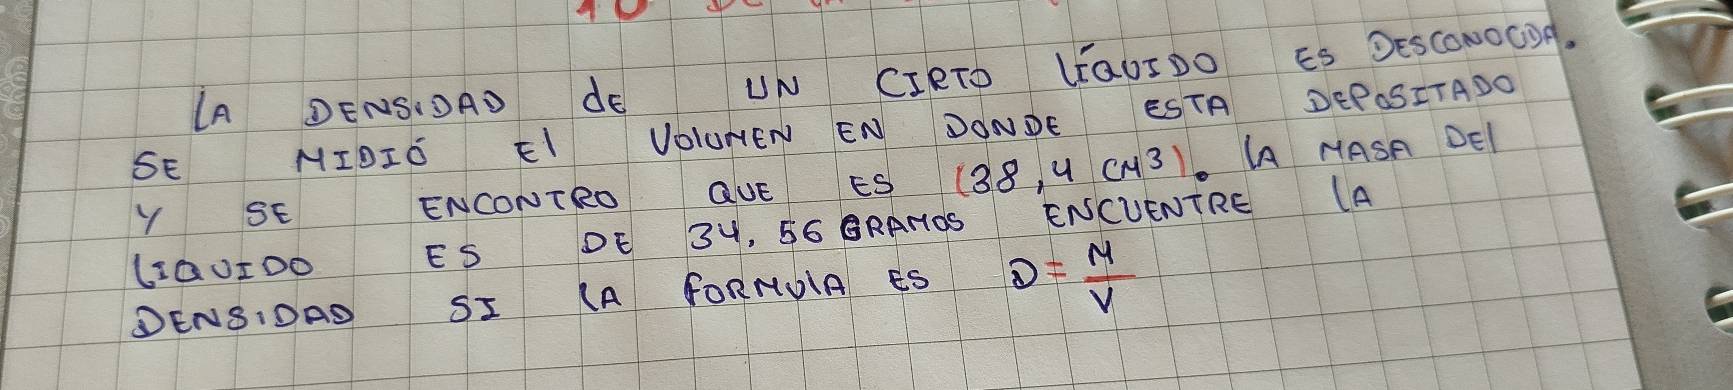 LA DENSIDAD dE UN CIRTO LÍQUIDO ES DESCONOCIDA.
SE MIDIÓ El VOlUMEN EN DONDE ESTA DEPOSITADO
Y SE ENCONTRO QUE ES (38,4 CM³). LA MASA DEl
LIQUIDO ES DE 34,56 GRAMOS ENCUENTRE LA
DENSIDAD SI LA FORMULA ES D = M/V